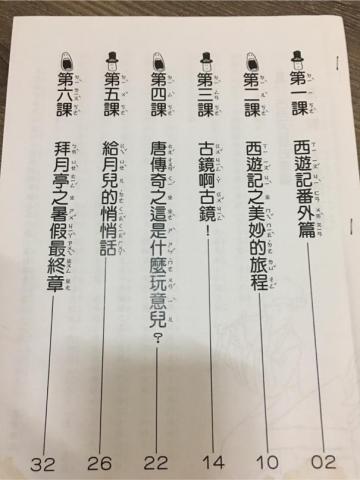 第一課 西遊記番外篇 02
第二課 西遊記之美妙的旅程 10
第三課 古鏡啊古鏡！ 14
第四課 唐傳奇之這是什麼玩意兒？ 22
第五課 給月兒的悄悄話 26
第六課 拜月亭之暑假最終章 32